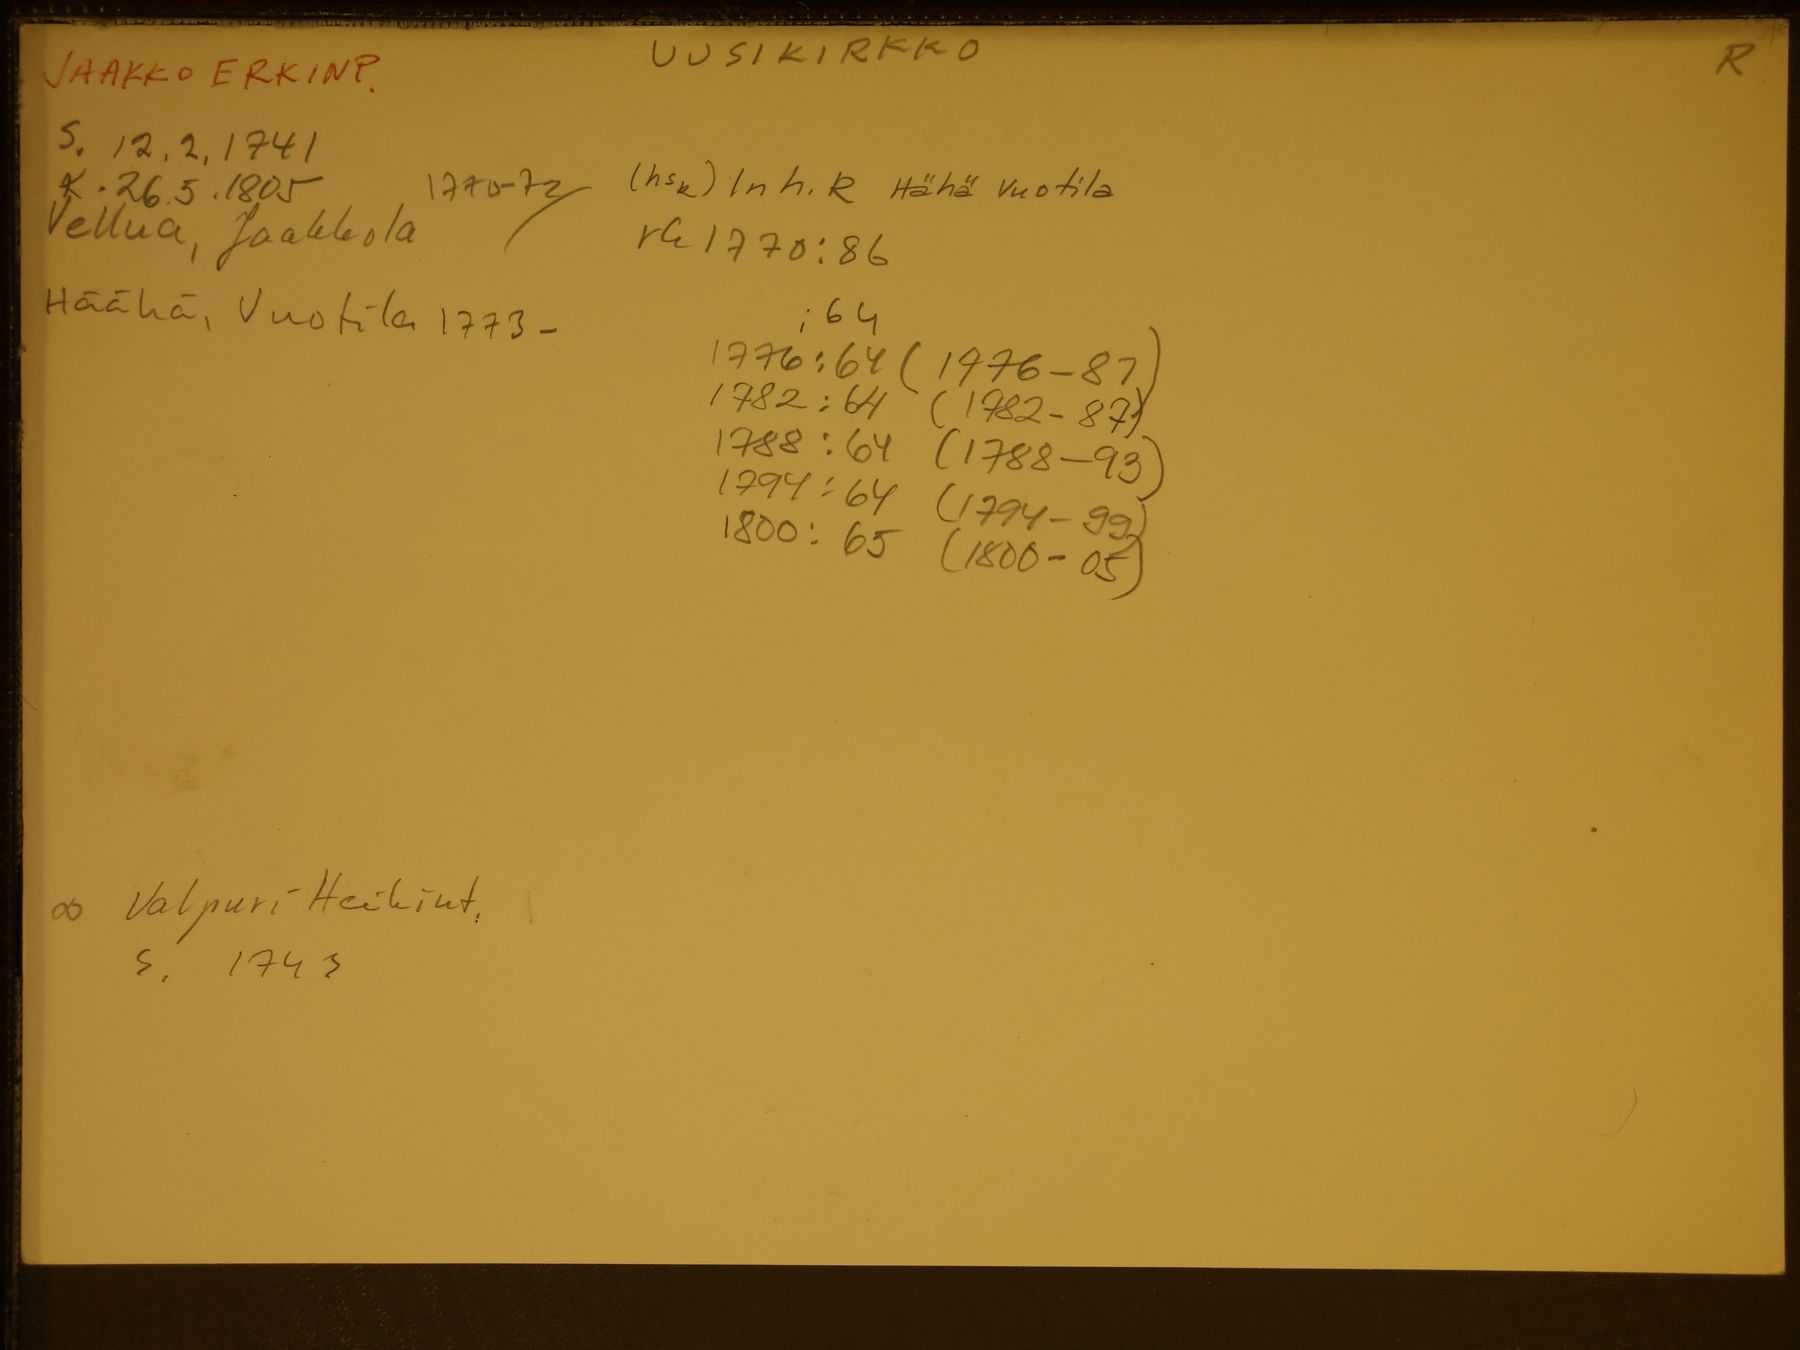 JAAKKO ERKINP.
UUSIKIRKKO
R
S. 12.2.1741
K. 26.5.1805
1770-72
(hsk) Inh. R Hähä Vuotila
Vellua, Jaakkola
rk 1770:86
Häähä, Vuotila 1773-
:64
1776:64 (1776-81)
1782:64 (1782-87)
1788:64 (1788-93)
1794:64 (1794-99)
1800:65 (1800-05)
∞ Valpuri Heikint.
S. 1743